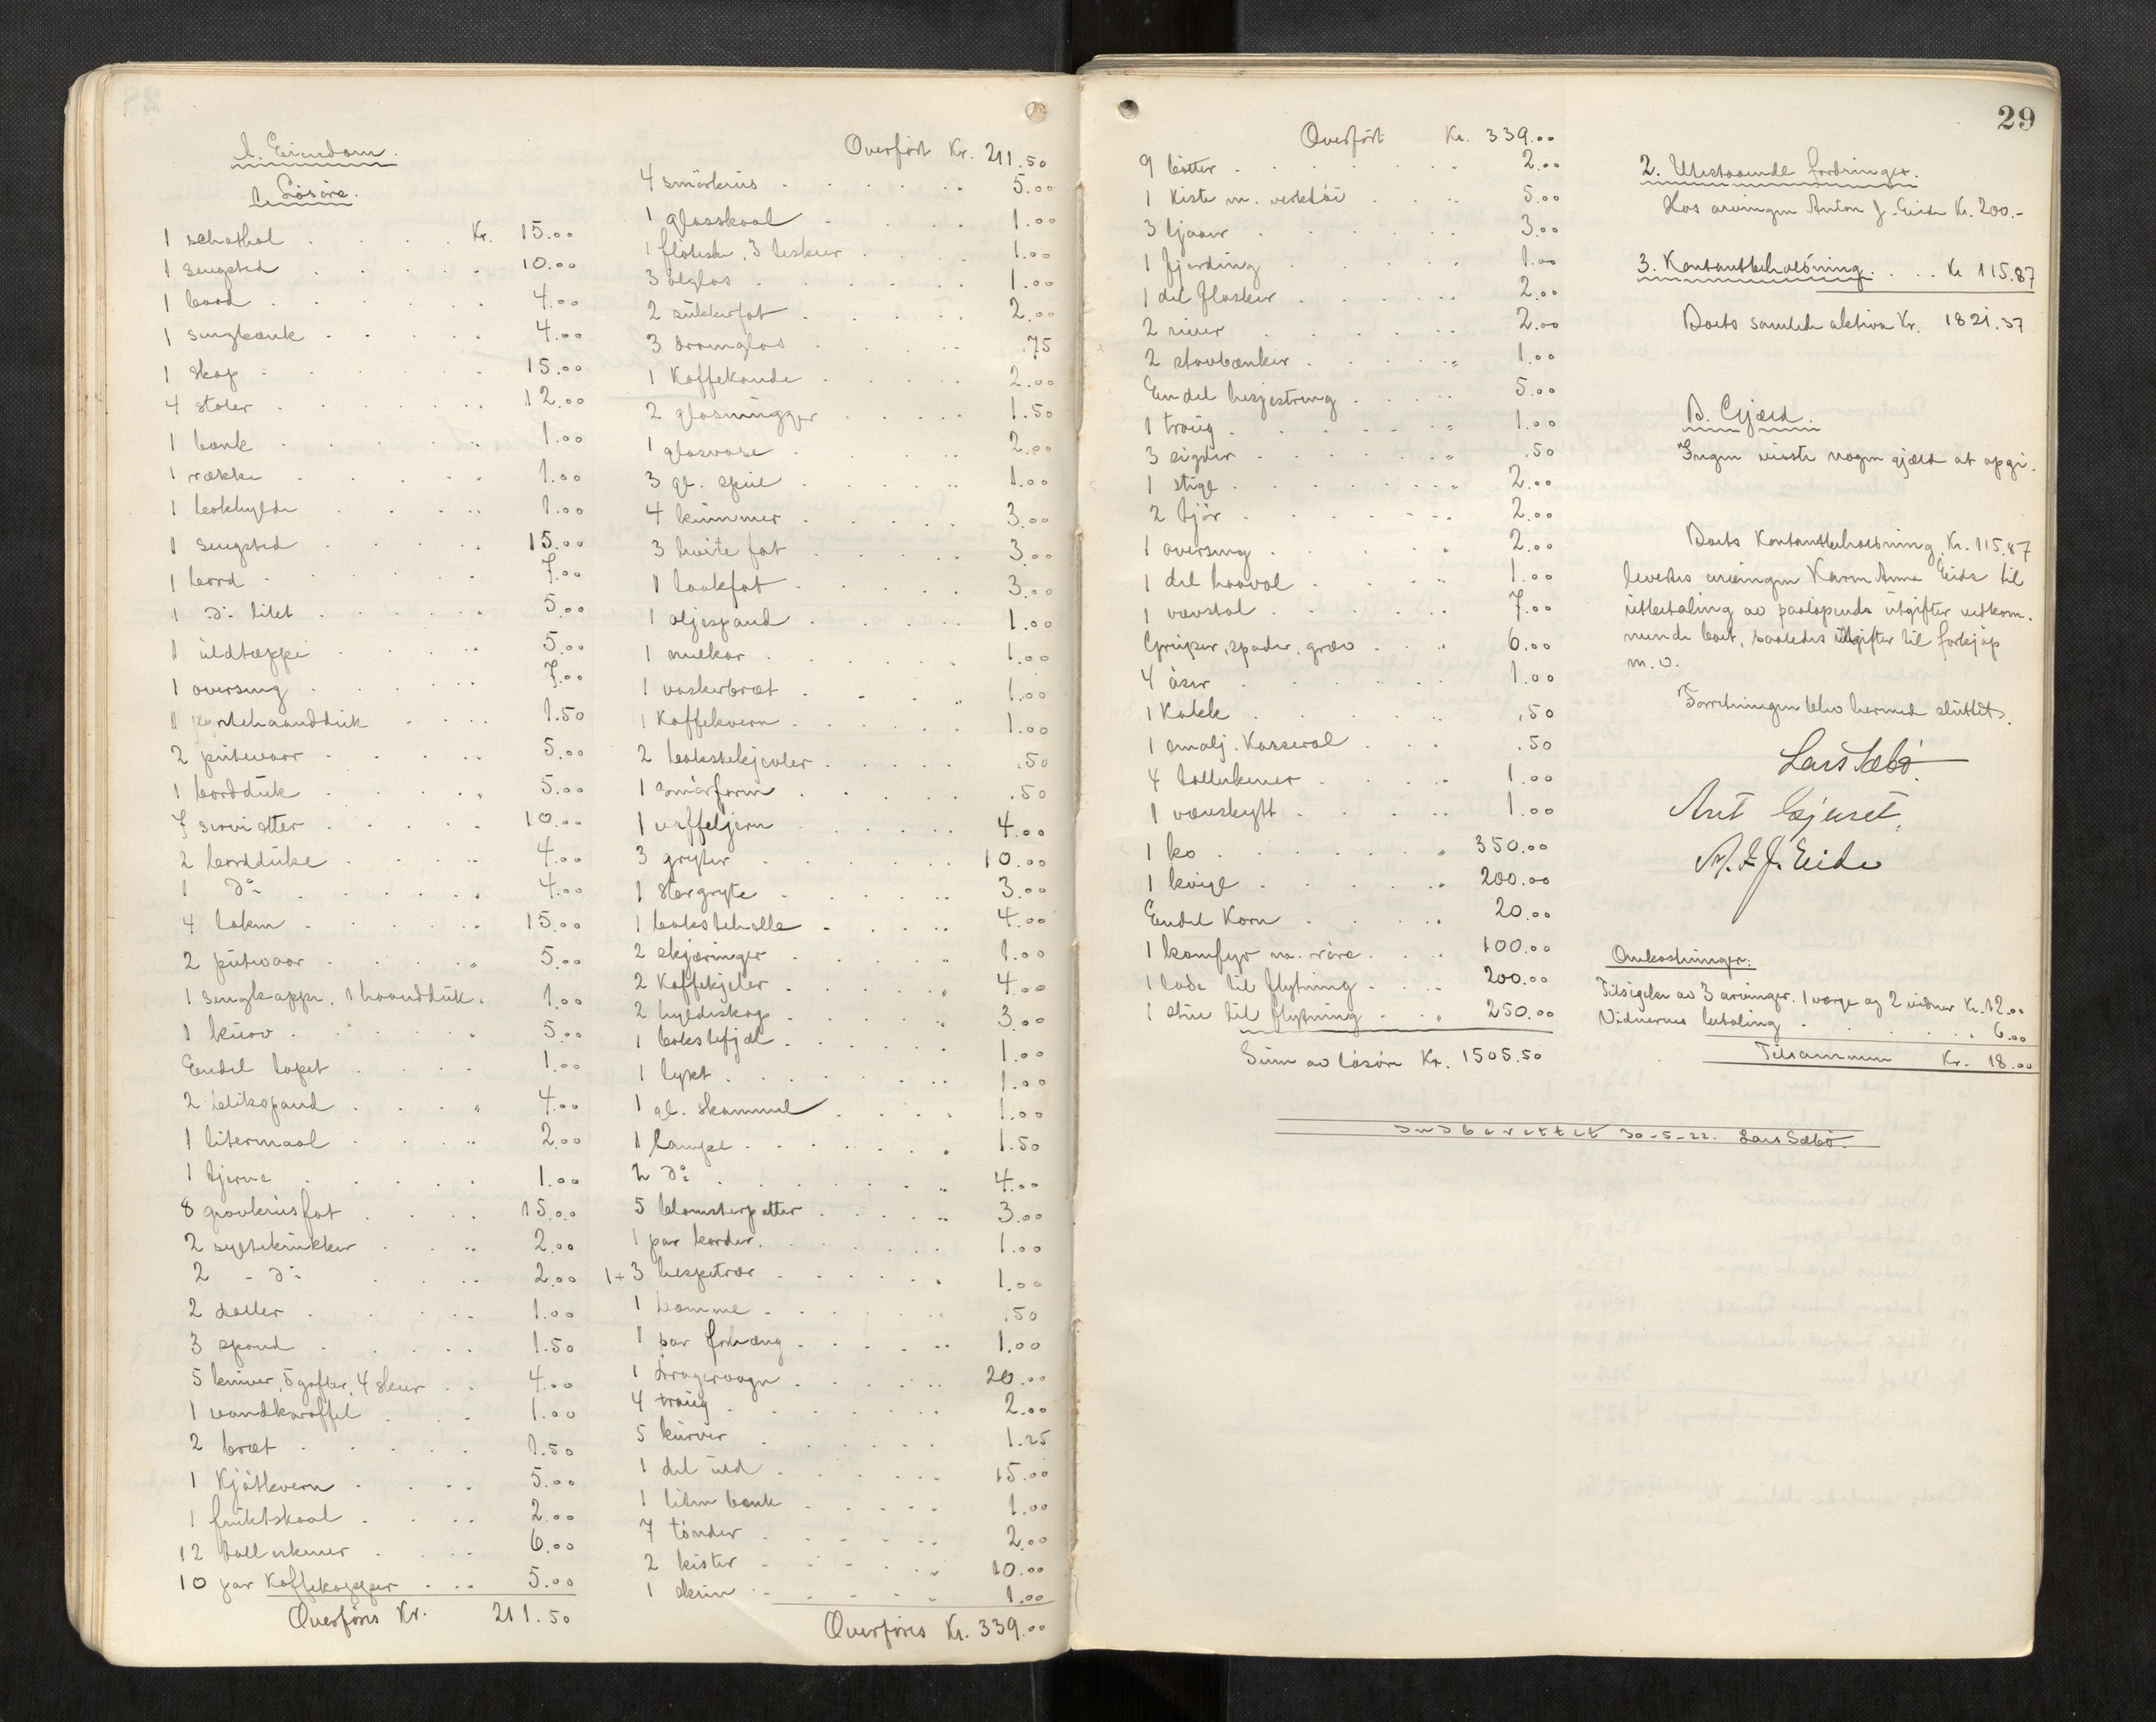 A. Eiendom.
1. Lösöre.
1 schathol . . . . Kr. 15.00
1 sengsted . . . . . 10.00
1 bord . . . . . . 4.00
1 sengbænk . . . . . 4.00
1 skap . . . . . . 15.00
4 stoler . . . . . . 12.00
1 bænk . . . . . . 1.00
1 række . . . . . 1.00
1 bokhylde . . . . 1.00
1 sengsted . . . . . 15.00
1 bord . . . . . . 7.00
1 do litet . . . . . 5.00
1 uldtæppe . . . . . 5.00
1 overseng . . . . . 7.00
1 haandduk . . . . 1.50
2 putevaar . . . . . 5.00
1 bordduk . . . . . 5.00
7 servietter . . . . . 10.00
2 bordduke . . . . . 4.00
1 do . . . . . . 4.00
4 laken . . . . . . 15.00
2 putevaar . . . . . 5.00
1 sengkappe, 1 haandduk . 1.00
1 kurv . . . . . . 5.00
Endel tapet . . . . 1.00
2 blikspand . . . . 4.00
1 litermaal . . . . 2.00
1 kjerne . . . . . 1.00
8 graukrusfat . . . . 15.00
2 syltekrukker . . . 2.00
2 - do . . . . 2.00
2 boller . . . . . 1.00
3 spand . . . . . 1.50
5 kniver, 5 gafler, 4 skeer . . 4.00
1 vandkaraffel . . . 1.00
2 bræt . . . . . 1.50
1 Kjötkvern . . . . 5.00
1 fruktskaal . . . . 2.00
12 tallerkener . . . . 6.00
10 par Kaffekopper . . . 5.00
Overföres Kr. 211.50
Overfört Kr. 211.50
4 smörkrus . . . . . . 5.00
1 glasskaal . . . . . 1.00
1 flöteske, 3 teskeer . . . . 1.00
3 ölglas . . . . . . 1.00
2 sukkerfat . . . . . 2.00
3 dramglas . . . . . .75
1 Kaffekande . . . . . 2.00
2 glasmugger . . . . . 1.50
1 glasvase . . . . . 2.00
3 gl. speil . . . . . 1.00
4 kummer . . . . . 3.00
3 hvite fat . . . . . 3.00
1 laakfat . . . . . 3.00
1 oljespand . . . . . 1.00
1 melkar . . . . . . 1.00
1 vaskerbræt . . . . 1.00
1 Kaffekvern . . . . . 1.00
2 bakstekjevler . . . . . .50
1 smörform . . . . . .50
1 vaffeljern . . . . . 4.00
3 gryter . . . . . . 10.00
1 storgryte . . . . . 3.00
1 bakstehelle . . . . . 4.00
2 skjæringer . . . . . 1.00
2 Kaffekjeler . . . . . 4.00
2 hyldeskap . . . . . 3.00
1 bakstefjøl . . . . . 1.00
1 lykt . . . . . . 1.00
1 gl. skammel . . . . 1.00
1 lampe . . . . . . 1.50
2 do . . . . . . 4.00
5 blomsterpotter . . . . . 3.00
1 par karder . . . . . . 1.00
1+3 hespetrær . . . . . . 1.00
1 komme . . . . . . .50
1 par forhæng . . . . . 1.00
1 dragervogn . . . . . 20.00
4 traug . . . . . . 2.00
5 kurver . . . . . 1.25
1 del uld . . . . . . 15.00
1 liten bænk . . . . . 1.00
7 tönder . . . . . 2.00
2 kister . . . . . . 10.00
1 skrin . . . . . 1.00
Overföres Kr. 339.00
29
Overfört Kr. 339.00
9 bötter . . . . . . 2.00
1 Kiste m. verktöi . . . . 5.00
3 ljaaer . . . . . . 3.00
1 fjerding . . . . . . 1.00
1 del flasker . . . . . 2.00
2 river . . . . . . 2.00
2 stavbænker . . . . . 1.00
Endel hesjestreng . . . . 5.00
1 traug . . . . . . 1.00
3 sigder . . . . . . .50
1 stige . . . . . . 2.00
2 tjör . . . . . . 2.00
1 overseng . . . . . 2.00
1 del haavol . . . . . 1.00
1 vævstol . . . . . 7.00
Greiper, spader, græv . . . 6.00
4 åser . . . . . . 1.00
1 Kakk . . . . . . .50
1 emalj. Kasserol . . . .50
4 tallerkener . . . . 1.00
1 vævskytt . . . . . 1.00
1 ko . . . . . . 350.00
1 kvige . . . . . . 200.00
Endel Korn . . . . . 20.00
1 komfyr m. röre . . . 100.00
1 lade til flytning . . . 200.00
1 stue til flytning . . . 250.00
Sum av lösöre Kr. 1505.50
Indberettet 30-5-22. Lars Sæbö.
2. Utestaaende fordringer.
Hos arvingen Anton J. Eide Kr. 200.-
3. Kontantbeholdning . . . Kr 115.87
Boets samlede aktiva Kr. 1821.37
B. Gjæld.
Ingen visste nogen gjæld at opgi.
Boets Kontantbeholdning, Kr. 115.87
levertes arvingen Karen Anna Eide til
utbetaling av paaløpende utgifter vedkom-
mende boet, saaledes utgifter til forkjöp
m.v.
Forretningen blev hermed sluttet.
Lars Sæbö.
Arnt Gjeset.
A. J. Eide
Omkostninger:
Tilsigelse av 3 arvinger, 1 værge og 2 vidner Kr. 12.00
Vidnernes betaling . . . . . . 6.00
Tilsammen Kr. 18.00